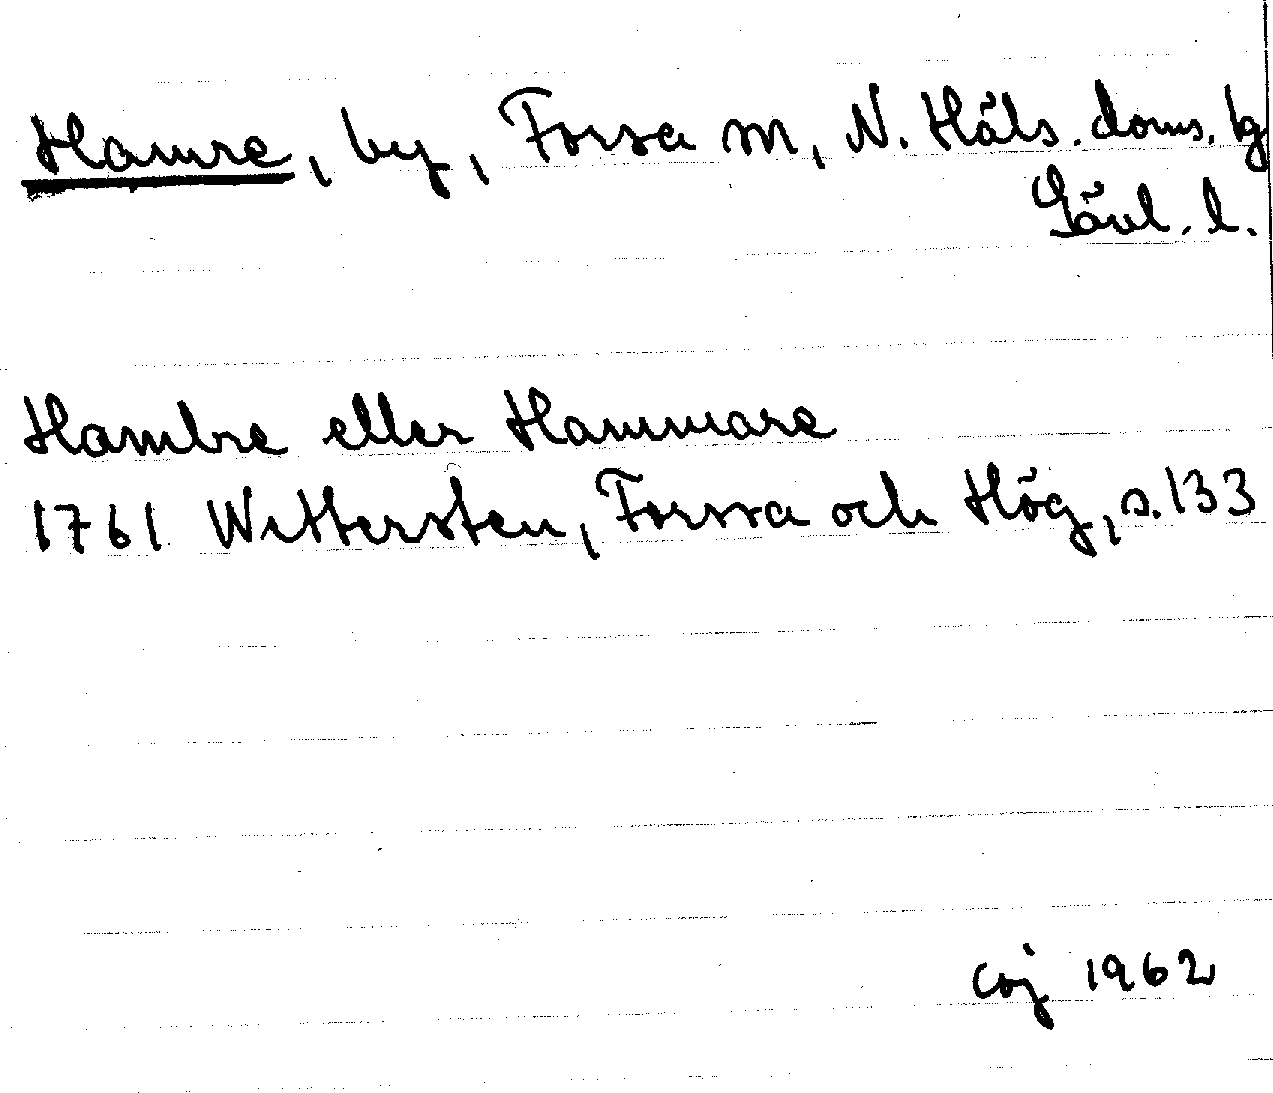 Hamre, by, Forsa sn, N. Häls. doms. tg
Gävl. l.
Hambre eller Hammare
1761 Wittersten, Forssa och Hög, s. 133
coj 1962